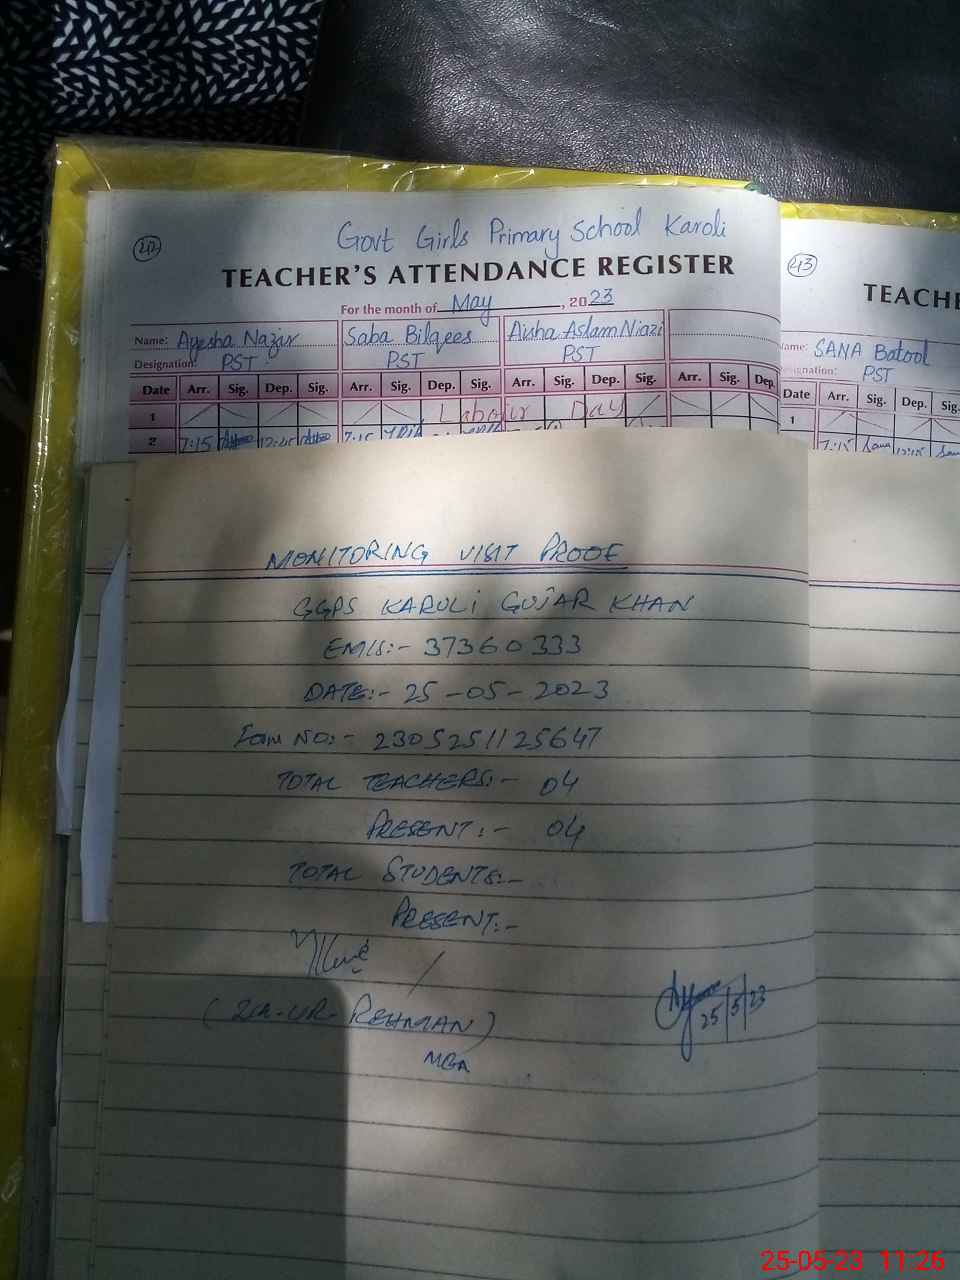 42
Govt Girls Primary School Karoli
TEACHER'S ATTENDANCE REGISTER
For the month of May, 2023
Name: Ayesha Nazir Saba Bilqees Aisha Aslam Niazi
Designation: PST PST PST
Date Arr. Sig. Dep. Sig. Arr. Sig. Dep. Sig. Arr. Sig. Dep. Sig. Arr. Sig. Dep.
1 Labour Day
2 7:15 12:45 7:15
43
TEACHE
Name: SANA Batool
Designation: PST
Date Arr. Sig. Dep. Sig.
1
7:15 Sana
MONITORING VISIT PROOF
GGPS KAROLI GUJAR KHAN
EMIS:- 37360333
DATE:- 25-05-2023
Form NO:- 2305251125647
TOTAL TEACHERS:- 04
PRESENT:- 04
TOTAL STUDENTS:-
PRESENT:-
(Zia-UR-REHMAN)
MEA
25/5/23
25-05-23 11:26